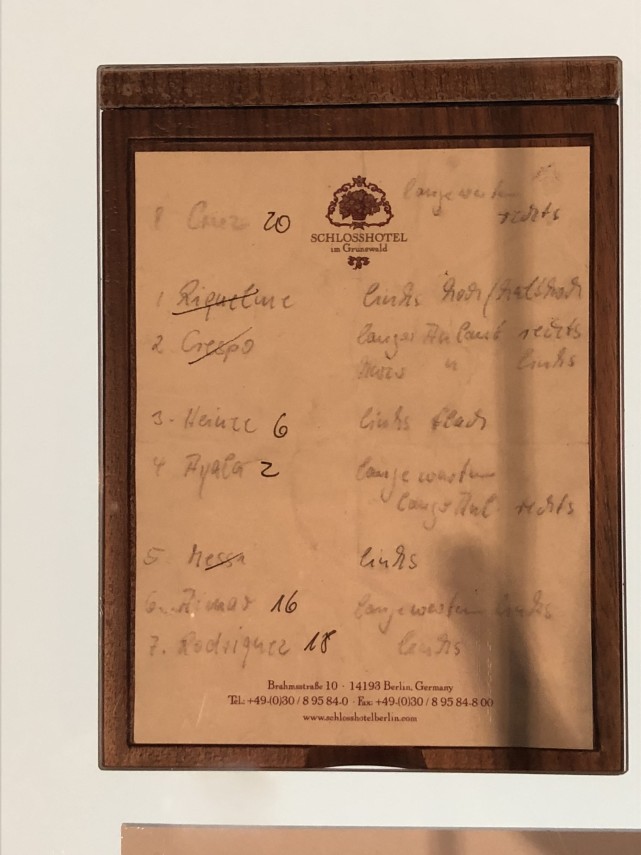 lange warten
8 Cruz 20 rechts
SCHLOSSHOTEL
im Grunewald
1 Riquelme links hoch/halbhoch
2 Crespo langer Anlauf rechts
kurz " links
3. Heinze 6 links flach
4 Ayala 2 lange warten
langer Anl. rechts
5 Messi links
6. Aimar 16 lange warten links
7. Rodriguez 18 links
Brahmsstraße 10 · 14193 Berlin, Germany
Tel.: +49-(0)30 / 8 95 84-0 · Fax: +49-(0)30 / 8 95 84-8 00
www.schlosshotelberlin.com